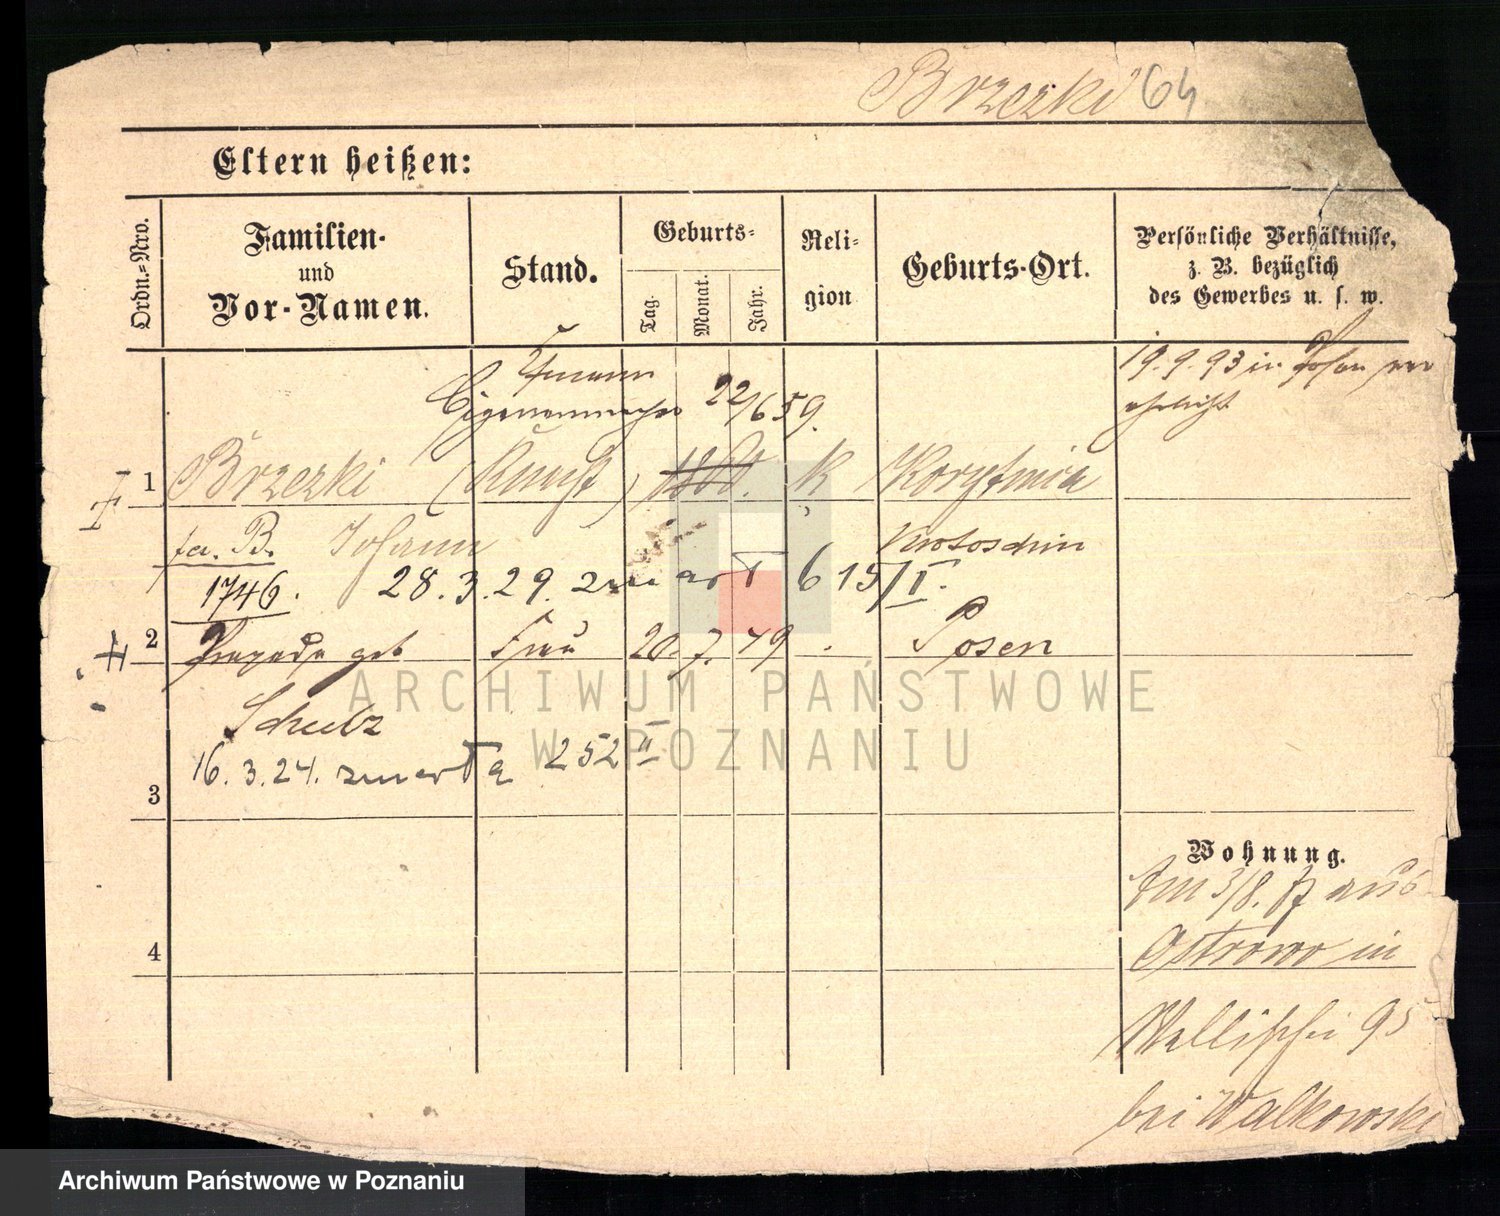 Brzezki 64
Eltern heißen:
Ordn.-Nro.
Familien-
und
Vor-Namen.
Stand.
Geburts-
Tag.
Monat.
Jahr.
Reli-
gion
Geburts-Ort.
Persönliche Verhältnisse,
z. B. bezüglich
des Gewerbes u. s. w.
19.9.93 in Posen ver
ehelicht
22/6 59.
1 Brzezki k Korytnica
fr. B. Johann Krotoschin
1746. 28.3.29. zmarł 615/I.
2 geb Frau 20. 7. 49 Posen
Schulz
16.3.24. zmarła 252 II
3
Wohnung.
Am 3/8. 87 aus
4 Ostrowo in
Wallischei 95
bei Walkowski
ARCHIWUM PAŃSTWOWE
W POZNANIU
Archiwum Państwowe w Poznaniu